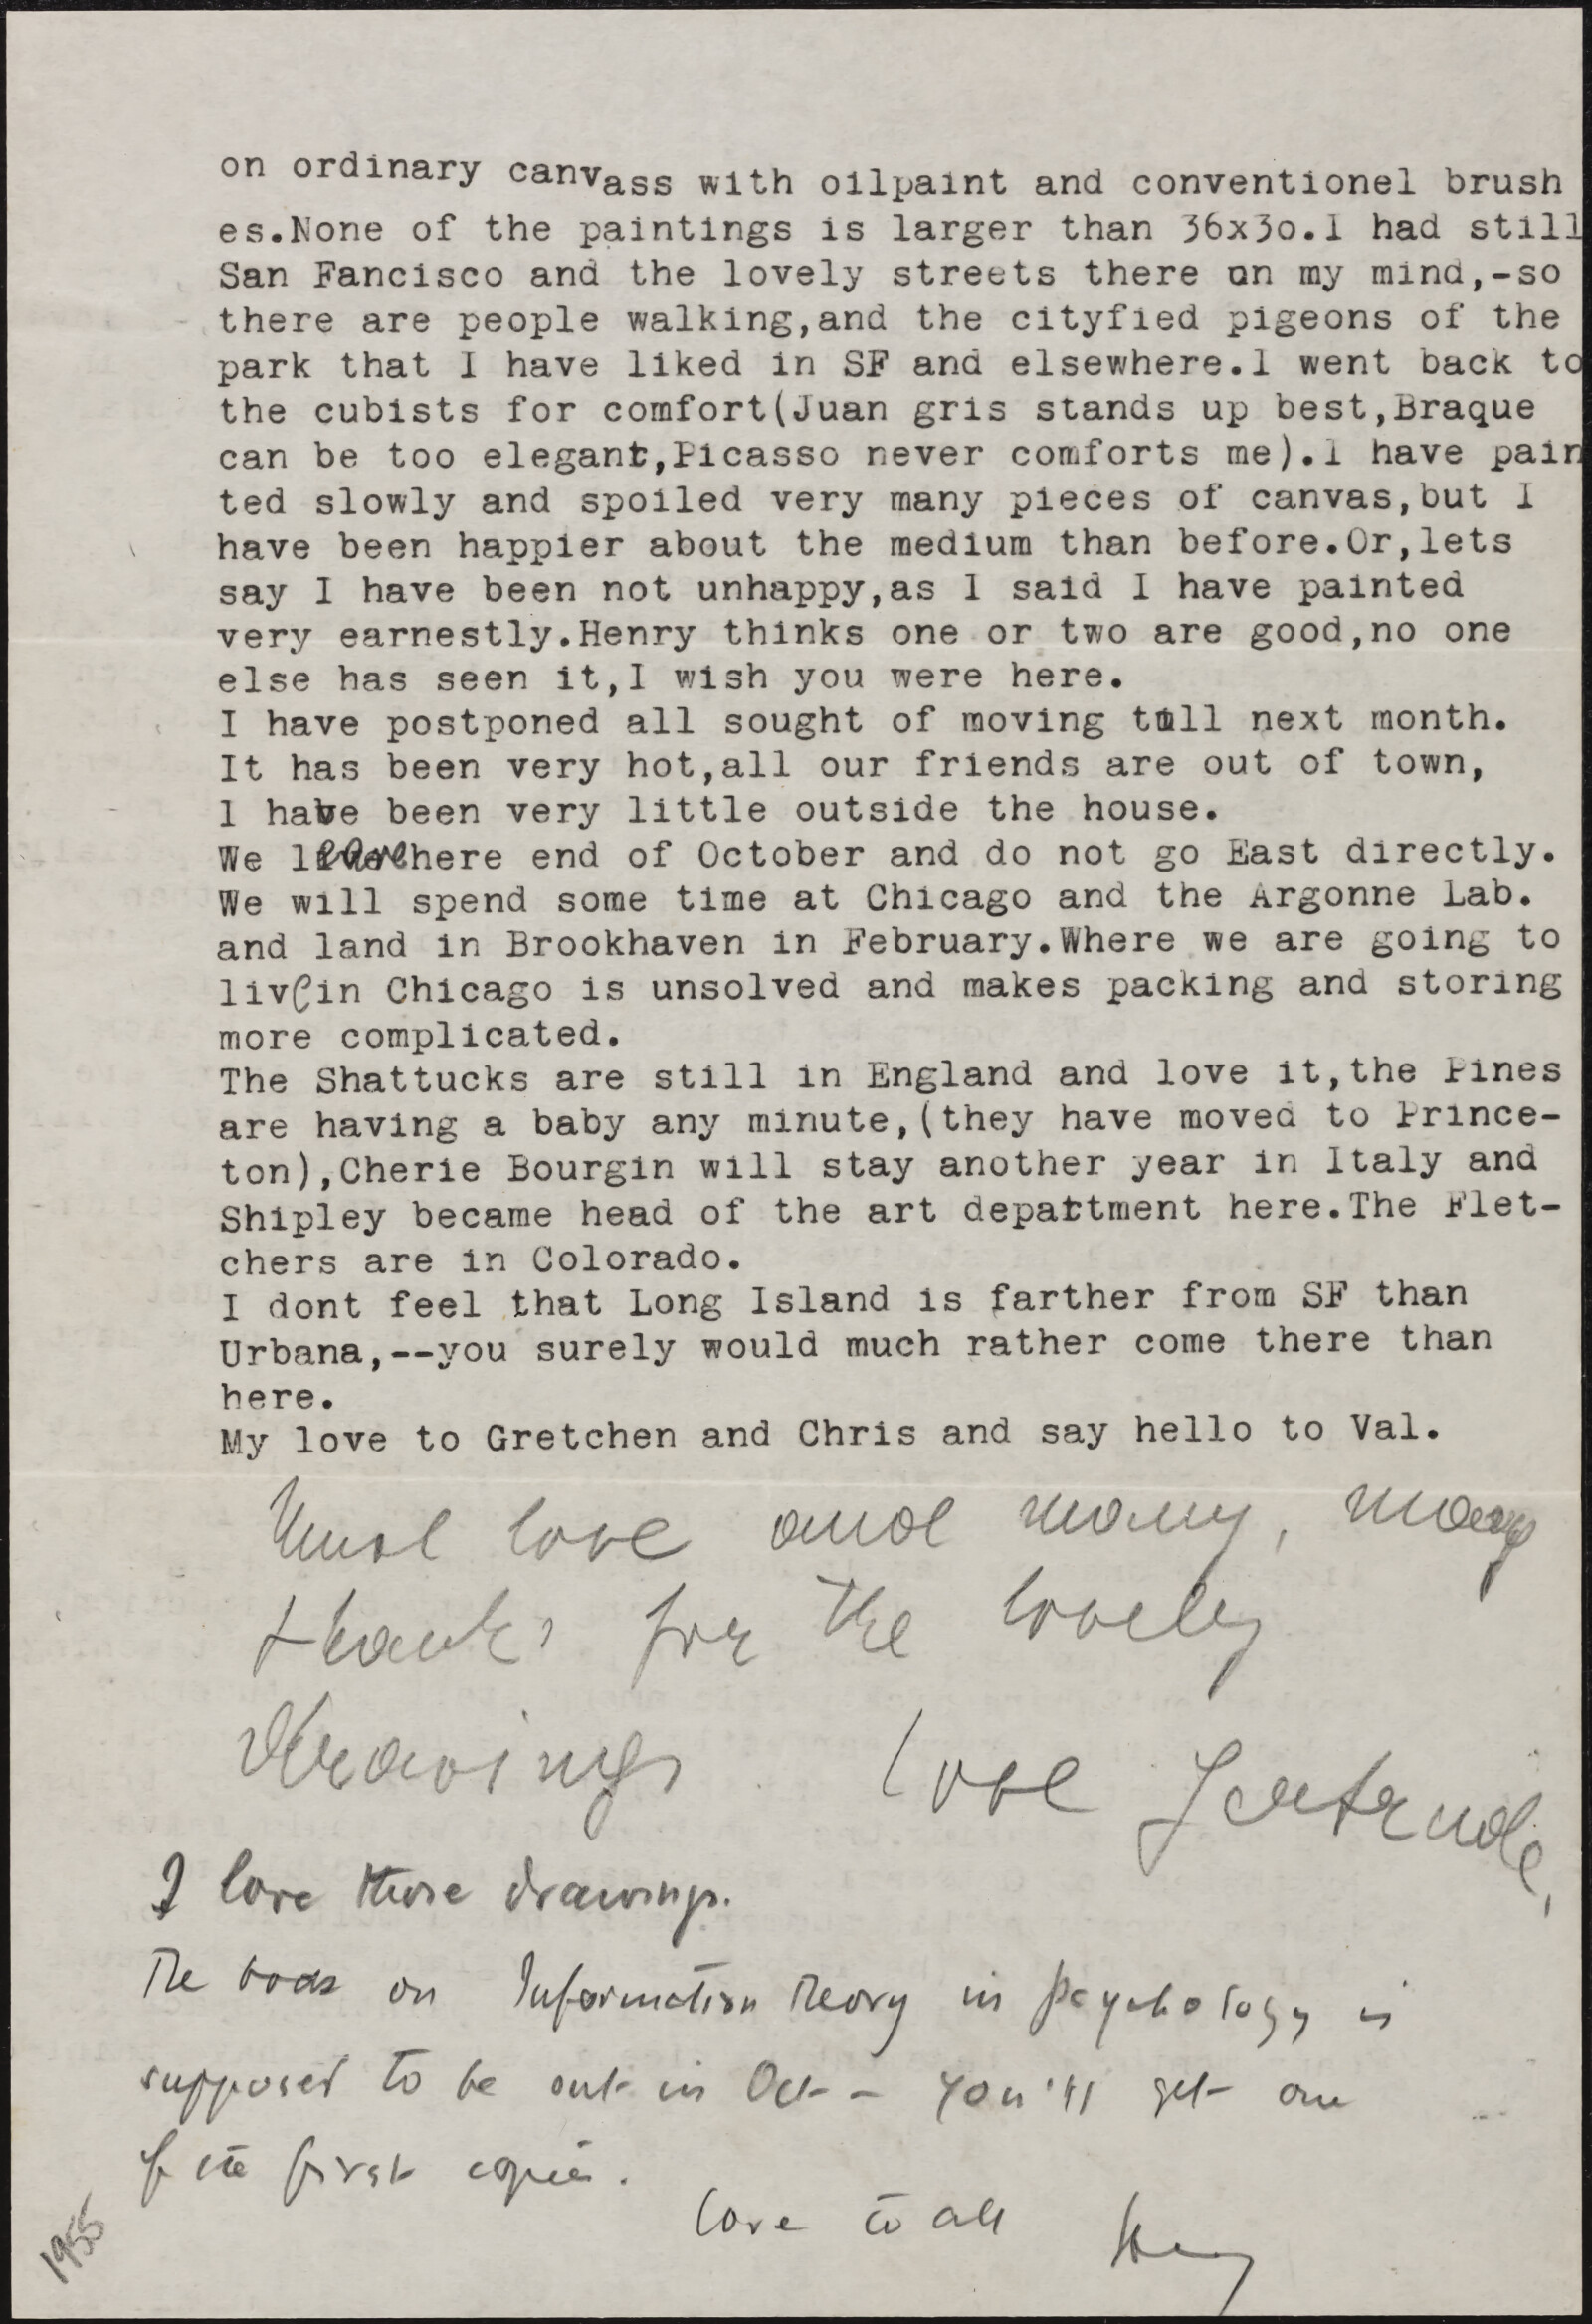 on ordinary canvass with oilpaint and conventionel brush
es.None of the paintings is larger than 36x3o.I had still
San Fancisco and the lovely streets there on my mind,-so
there are people walking,and the cityfied pigeons of the
park that I have liked in SF and elsewhere.I went back to
the cubists for comfort(Juan gris stands up best,Braque
can be too elegant,Picasso never comforts me).I have pain
ted slowly and spoiled very many pieces of canvas,but I
have been happier about the medium than before.Or,lets
say I have been not unhappy,as I said I have painted
very earnestly.Henry thinks one or two are good,no one
else has seen it,I wish you were here.
I have postponed all sought of moving till next month.
It has been very hot,all our friends are out of town,
I have been very little outside the house.
We leave here end of October and do not go East directly.
We will spend some time at Chicago and the Argonne Lab.
and land in Brookhaven in February.Where we are going to
live in Chicago is unsolved and makes packing and storing
more complicated.
The Shattucks are still in England and love it,the Pines
are having a baby any minute,(they have moved to Prince-
ton),Cherie Bourgin will stay another year in Italy and
Shipley became head of the art department here.The Flet-
chers are in Colorado.
I dont feel that Long Island is farther from SF than
Urbana,--you surely would much rather come there than
here.
My love to Gretchen and Chris and say hello to Val.
Much love and many, many
thanks for the lovely
drawings love Gertrude,
I love those drawings.
The book on Information Theory in Psychology is
supposed to be out in Oct - you'll get one
of the first copies.
Love to all Henry
1955